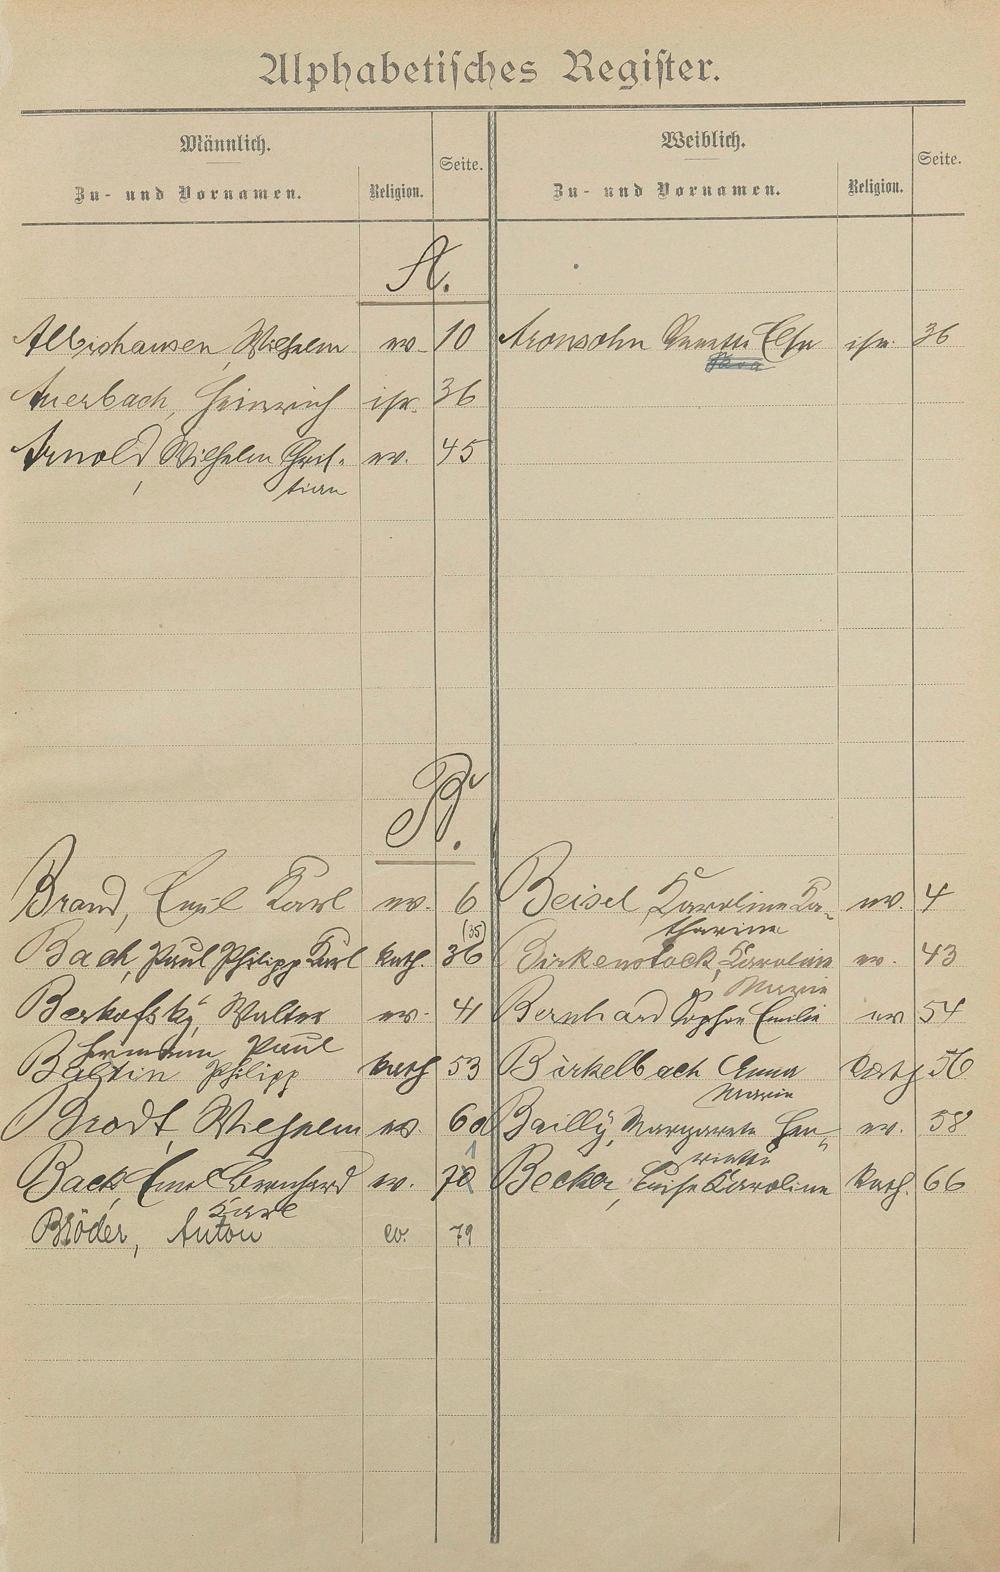 Alphabetisches Register.
Männlich.
Zu- und Vornamen.
Religion.
Seite.
Weiblich.
Zu- und Vornamen.
Religion.
Seite.
A.
Albishausen, Wilhelm ev. 10
Aronsohn Elsa isr. 36
Auerbach, Heinrich isr. 36
Arnold, Wilhelm Chris-
tian ev. 45
B.
Brand, Emil Karl ev. 6
Beisel, Karoline Ka-
tharina ev. 4
Bach, Paul Philipp Karl kath. 36 (35)
Birkenstock, Karoline
Marie ev. 43
Berkofský, Walter ev. 41
Bernhard Sophie Emilie ev 54
Hermann Paul
Philipp kath 53
Birkelbach Anna
Marie kath 56
Brodt, Wilhelm ev. 60
Bailly, Margareta Hen-
riette ev. 58
Back, Emil Bernhard
Karl ev. 70 1
Becker, Luise Karoline kath. 66
Bröder, Anton ev. 79